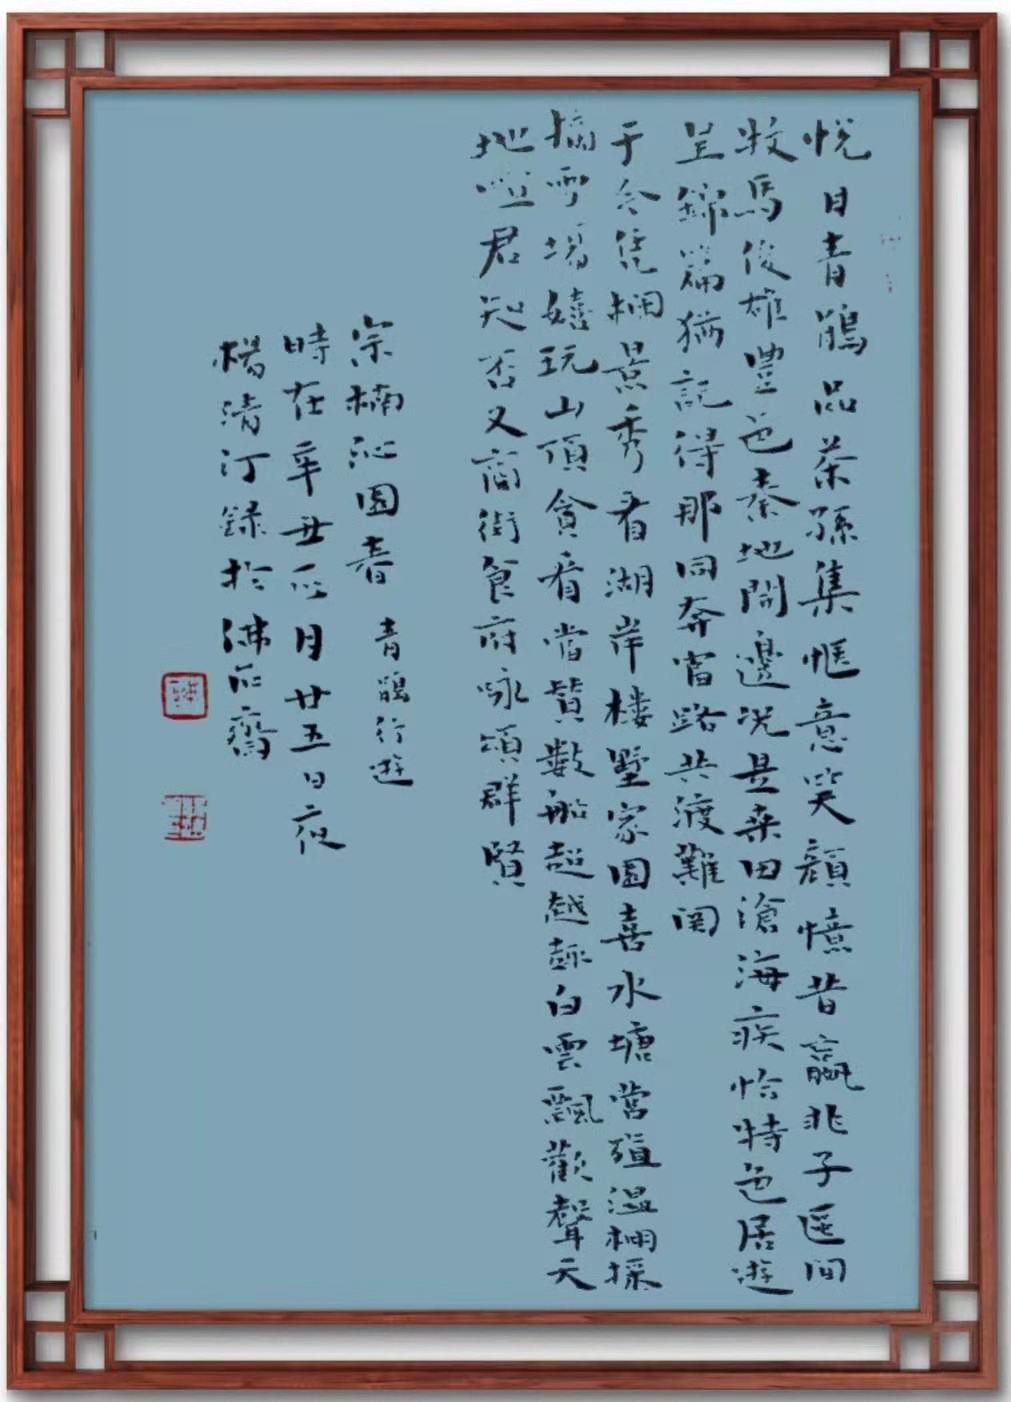 悅目青鵑品茶孫集愜意笑顏憶昔嬴非子匽间
牧馬俊雄豐邑秦地開邊况是桑田滄海疾恰特色居遊
呈錦篇猶記得那同奔富路共渡難関
于今凭栏景秀看湖岸楼墅家园喜水塘當殖温棚採
摘雪場嬉玩山頂貪看當鬢數船超越趣白雲飄歡聲天
地喧君知否又商街食府咏頌群賢
宗楠沁园春 青鵑行遊
時在辛丑二月廿五日夜
楊清汀録於沸石齋